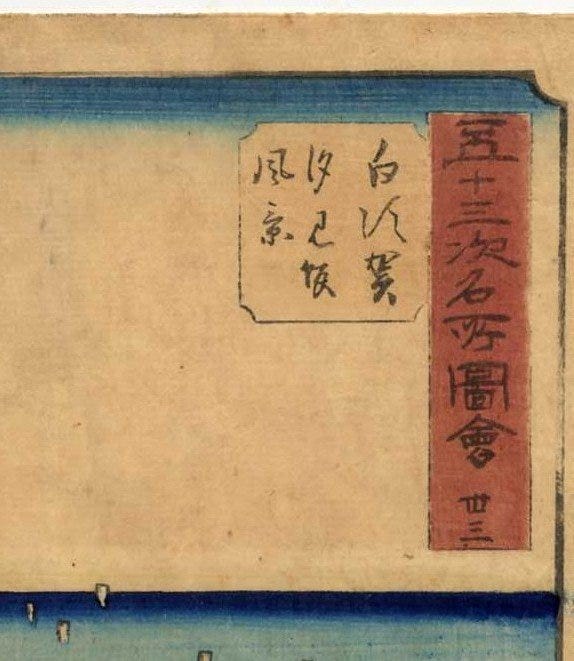 五十三次名所圖會 丗三
白須賀
汐見坂
風景